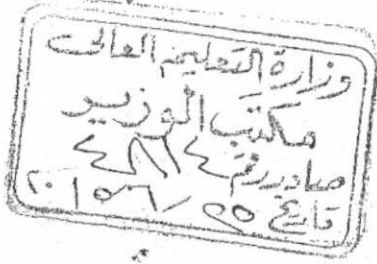 وزارة التعليم العالى
مكتب الوزير
صادر رقم
تاريخ ٢٥ / ٦ / ٢٠١٥